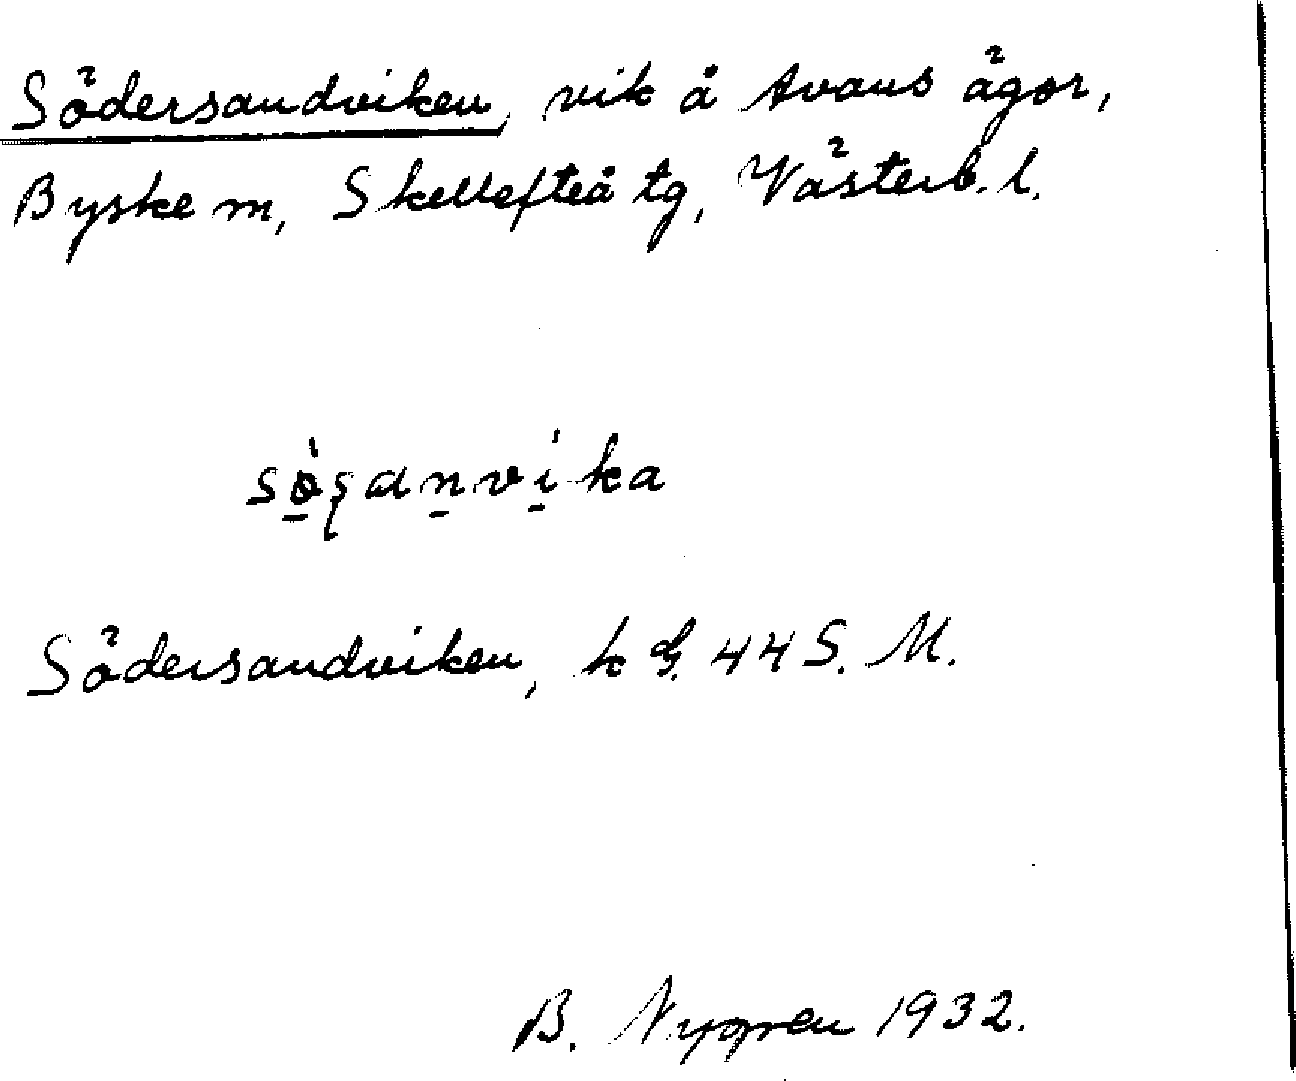 Södersandviken, vik å Avans ägor,
Byske sn, Skellefteå tg, Västerb. l.
Södersandviken, k 44 S. M.
B. Nygren 1932.